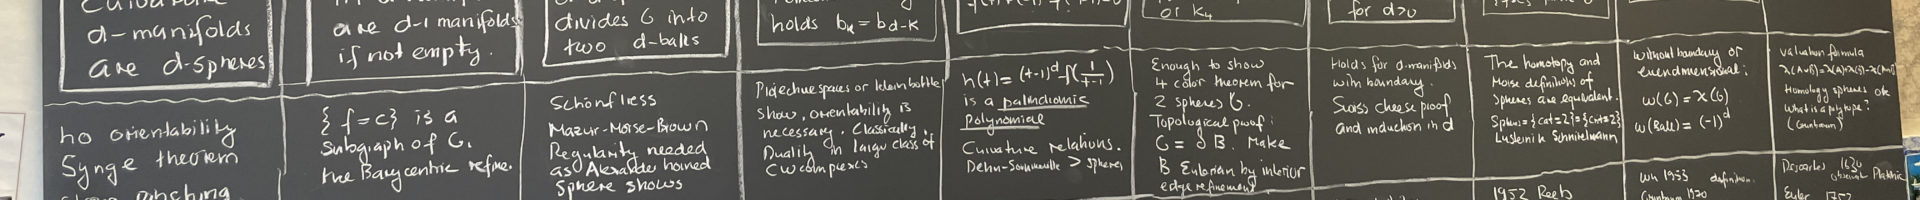 d-manifolds
are d-spheres
are d-1 manifolds
if not empty.
divides G into
two d-balls
holds bk = bd-k
or K4
for d>0
no orientability
Synge theorem
pinching
{f=c} is a
Subgraph of G.
the Barycentric refine.
Schönfliess
Mazur-Morse-Brown
Regularity needed
as Alexander horned
Sphere shows
Projective spaces or Klein bottle
show, orientability is
necessary. Classically.
Duality in large class of
CW complexes
h(t) = (t-1)^d f(1/(t-1))
is a palindromic
polynomial
Curvature relations.
Dehn-Sommerville > spheres
Enough to show
4 color theorem for
2 spheres G.
Topological proof:
G = δB. Make
B Eulerian by interior
edge refinement
Holds for d-manifolds
with boundary.
Swiss cheese proof
and induction in d
The homotopy and
Morse definitions of
Spheres are equivalent.
Spheres = {cat=2} = {crit=2}
Lusternik Schnirelmann
without boundary or
evendimensional:
w(G) = χ(G)
w(Ball) = (-1)^d
valuation formula
Homology spheres ok
What is a polytope?
(Grünbaum)
1952 Reeb
Wu 1953 definition.
Grünbaum 1970
Descartes 1630
Platonic
Euler 1752